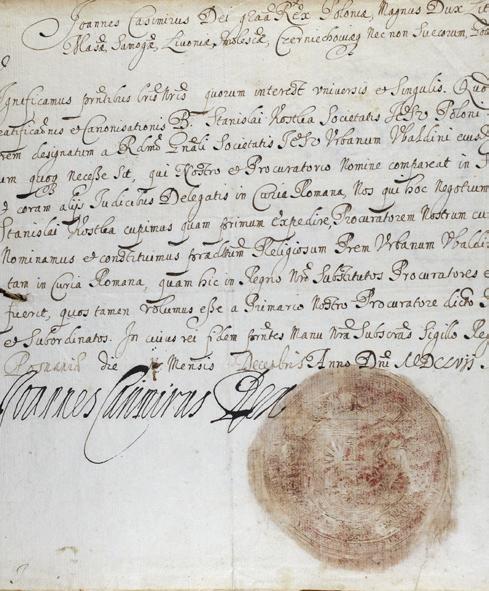 Joannes Casimirus Dei graa Rex Poloniæ, Magnus Dux Lit
Masæ, Samogæ, Livoniæ, Smolescæ, Czerniechoviæq Nec non Suecorum,
Significamus prntibus Lris Nris quorum interest vniversis et Singulis. Quo
eatificaōnis et Canonisationis B. Stanislai Kostka Societatis Jesu Poloni
rem designatum a Rdmo Gnali Societatis Jesu Vrbanum Vbaldini eius
um quoq necesse sit, qui Nostro et Procuratorio Nomine compareat in
coram alijs Judicibus Delegatis in Curia Romana, Nos qui hoc Negotium
Stanislai Kostka cupimus quam primum expedire, Procuratorem Nostrum cu
Nominamus et constituimus Religiosum Prem Vrbanum Vbaldi
tam in Curia Romana, quam hic in Regno Nro Substitutos Procuratores e
fuerit, quos tamen volumus esse a Primario Nostro Procuratore dicto
et Subordinatos. In cuius rei fidem prntes Manu Nra Subscras Sigillo Reg
die Mensis Decembris Anno Dni MDCLVII
Joannes Casimirus Rex